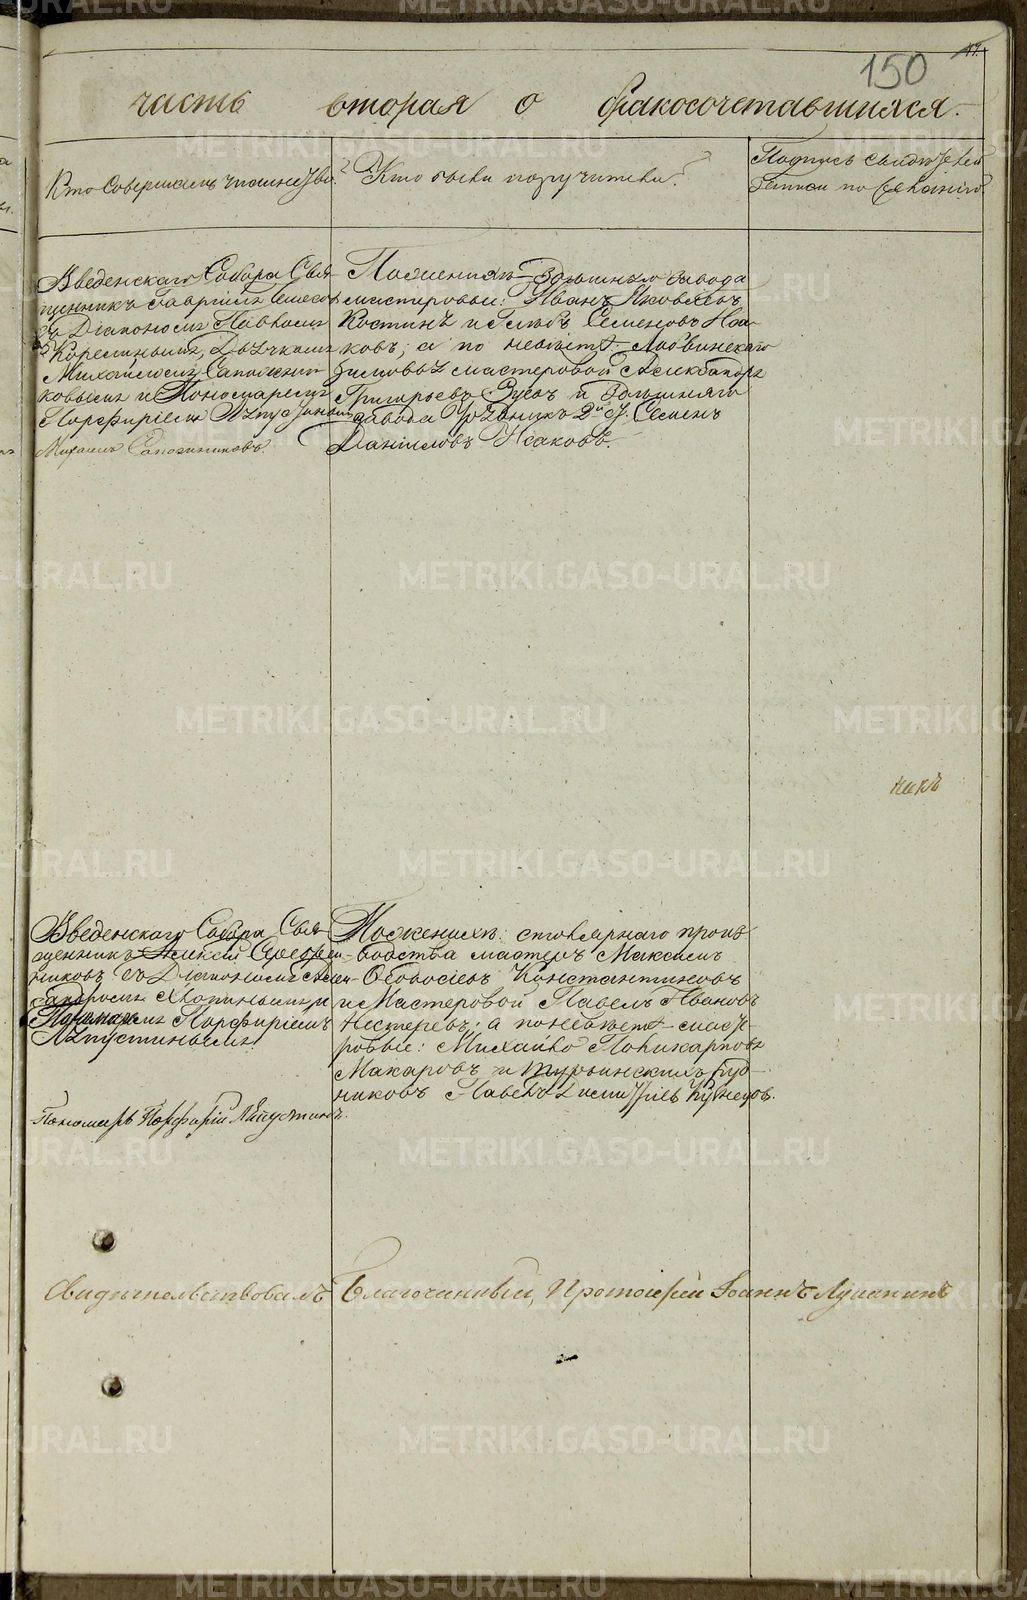 150
часть вторая о бракосочетавшихся.
Кто совершалъ таинство?
Кто были поручители?
Подпись свидѣтелей
записи по желанію.
Введенскаго Собора Свя-
щенникъ Гавріилъ
съ Діакономъ Павломъ
Дьячкомъ
Михайломъ Сапожни-
ковымъ и Пономаремъ
Порфиріемъ Лапустинымъ
Михаилъ Сапожниковъ.
По женихѣ завода
мастеровые: Иванъ Яковлевъ
Костинъ и Глѣбъ Семеновъ Иса-
ковъ; а по невѣстѣ Лобвинскаго
зимовья мастеровой Александръ
Григорьевъ Зуевъ и здѣшняго
завода Урядникъ 2й ст. Семенъ
Даниловъ Исаковъ.
никъ
Введенскаго Собора Свя-
щенникъ Алексій Серебрен-
никовъ съ Діакономъ Алек-
сандромъ Хлопинымъ и
Пономаремъ Порфиріемъ
Лапустинымъ.
Пономарь Порфирій Лапустинъ.
По женихѣ: столярнаго произ-
водства мастеръ Максимъ
Ѳедосѣевъ Константиновъ
и Мастеровой Павелъ Ивановъ
Нестеровъ; а по невѣстѣ масте-
ровые: Михайло Поликарповъ
Макаровъ и Турьинскихъ руд-
никовъ Павелъ Дмитріевъ Кузнецовъ.
Свидѣтельствовалъ Благочинный, Протоіерей Іоаннъ Луканинъ
METRIKI.GASO-URAL.RU